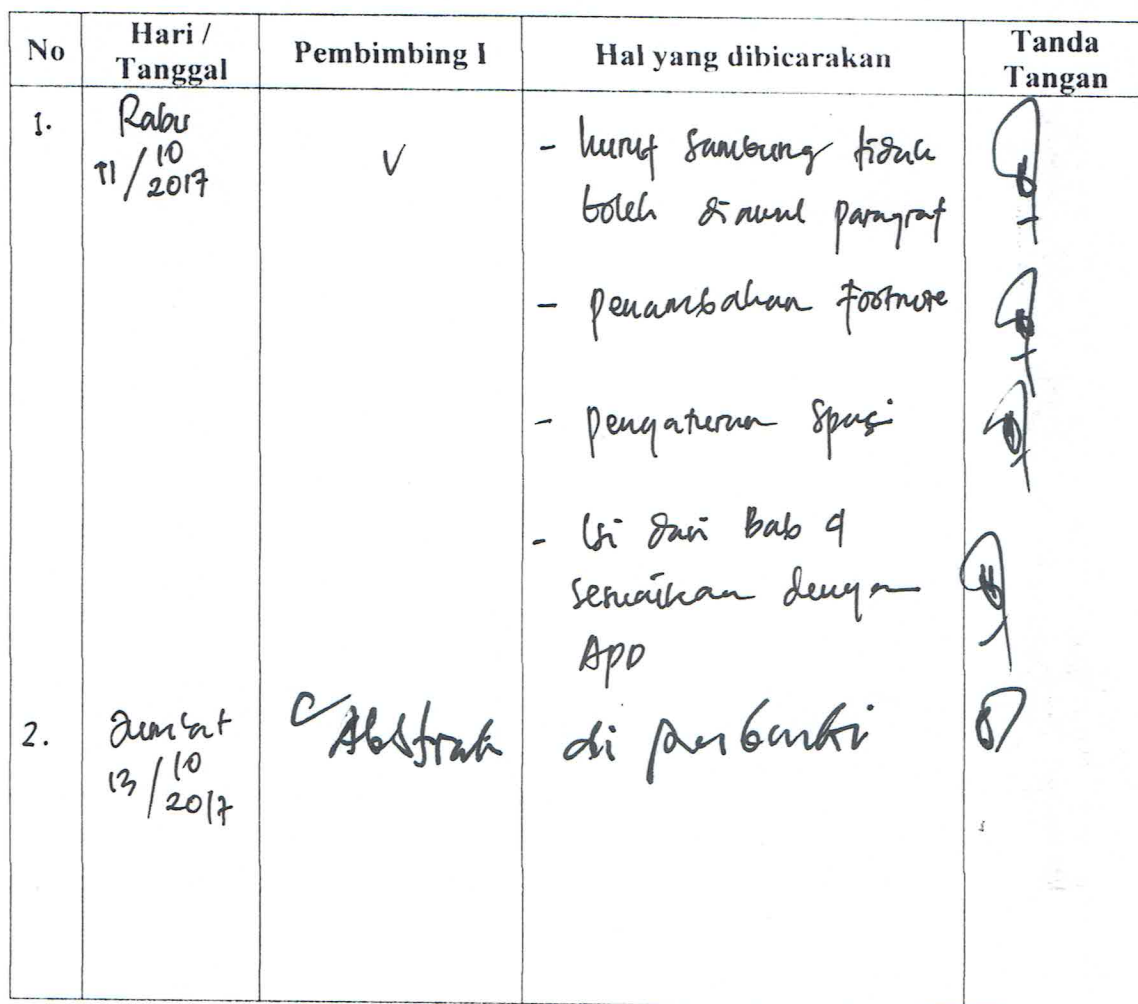 No Hari / Tanggal Pembimbing I Hal yang dibicarakan Tanda Tangan
1. Rabu 11/10 2017 V - huruf sambung tidak
boleh diawal paragraf
- penambahan Footnote
- pengaturan spasi
- Isi dari Bab 4
sesuaikan dengan
APD
2. Jum'at 13/10 2017 Abstrak di perbaiki